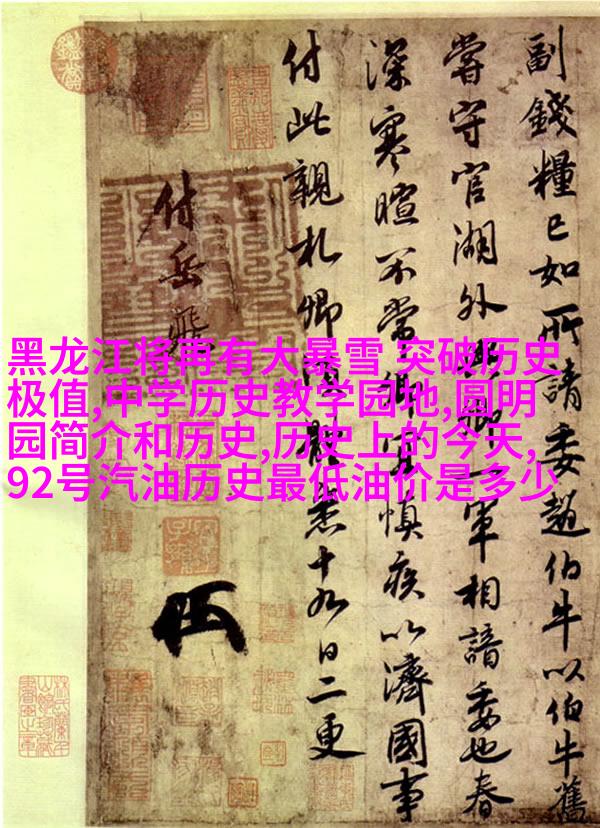 黑龙江将再有大暴雪 突破历史
极值,中学历史教学园地,圆明
园简介和历史,历史上的今天,
92号汽油历史最低油价是多少
副錢糧已如所請委趙伯牛以伯牛舊
嘗守官湖外卿一軍相諳委也春
深寒暄不常卿宜慎疾以濟國事
付此親札卿體悉十九日二更
付岳飛